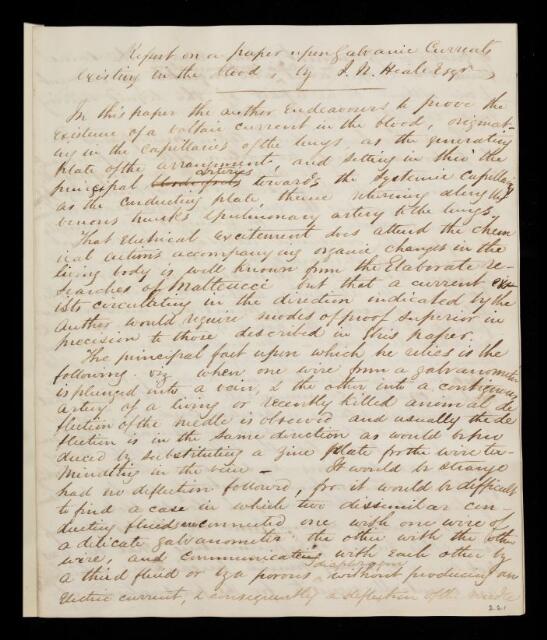 Report on a paper upon Galvanic Currents
existing in the blood, by J. N. Heale Esqr
In this paper the author Endeavours to prove the
existence of a voltaic current in the blood, originat-
ing in the capillaries of the lungs, as the generating
plate of the arrangement, and setting in thro the
principal arteries towards the Systemic Capillaries
as the conducting plate, thence returning along the
venous trunks & pulmonary artery to the lungs.
That Electrical excitement does attend the chem
ical actions accompanying organic changes in the
living body is well known from the Elaborate re-
searches of Matteucci but that a current ex-
ists circulating in the direction indicated by the
Author would require modes of proof superior in
precision to those described in this paper.
The principal fact upon which he relies is the
following. viz when one wire from a galvanometer
is plunged into a vein, & the other into a contiguous
artery of a living or recently killed animal de
flection of the needle is observed and usually the de
flection is in the same direction as would be pro
duced by substituting a zinc plate for the wire ter-
minating in the vein – It would be strange
had no deflection followed, for it would be difficult
to find a case in which two dissimilar con
ducting fluids connected one with one wire of
a delicate galvanometer the other with the other
wire, and communicating with each other by
a third fluid or by a porous diaphragm without producing an
Electric current, & consequently a deflection of the needle
221